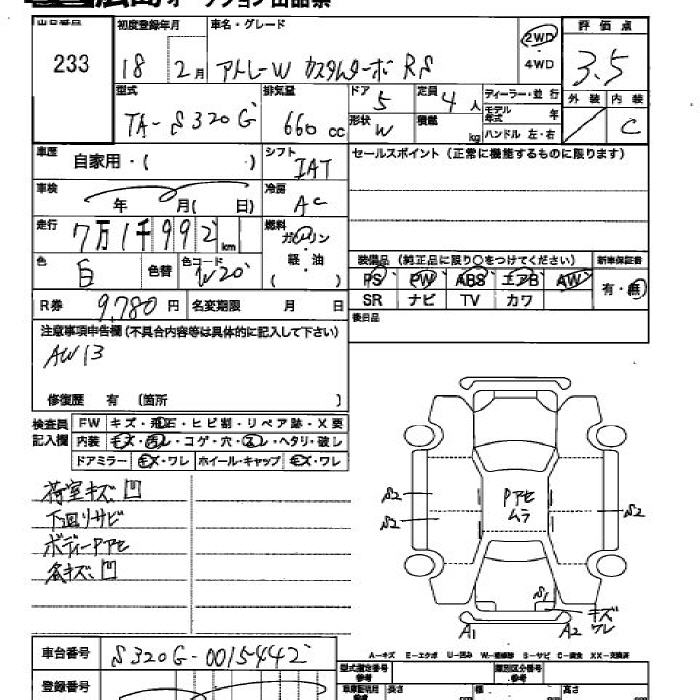 広島オークション出品票
出品番号 初度登録年月 車名・グレード 2WD 4WD 評価点
233 18年2月 アトレーW カスタムターボRS 3.5
型式 排気量 ドア 5 定員 4人 ディーラー・並行 外装 内装
TA-S320G 660cc 形状 W 積載 kg モデル年式 年 C
ハンドル 左・右
車歴 自家用・( ) シフト IAT セールスポイント(正常に機能するものに限ります)
車検 年 月( 日) 冷房 AC
走行 7万1千992km 燃料 ガソリン 軽・油 ( )
色 白 色替 色コード W20 装備品(純正品に限り○をつけてください) 新車保証書
PS PW ABS エアB AW 有・無
SR ナビ TV カワ
R券 9,780円 名変期限 月 日 後日品
注意事項申告欄(不具合内容等は具体的に記入して下さい)
AW13
修復歴 有 (箇所 )
検査員記入欄 FW キズ・飛石・ヒビ割・リペア跡・X要
内装 キズ・汚レ・コゲ・穴・スレ・ヘタリ・破レ
ドアミラー キズ・ワレ ホイール・キャップ キズ・ワレ
荷室キズ凹
下回リサビ
ボディーPアセ
各キズ、凹
Pアセ
ムラ
S2
S2
S2
S1
キズ
ワレ
A1 A2
A-キズ E-エクボ U-凹み W-補修跡 S-サビ C-腐食 XX-交換済
車台番号 S320G-0015442
型式指定番号 参考 類別区分番号 参考
登録番号 車庫証明用 参考 長さ 幅 高さ